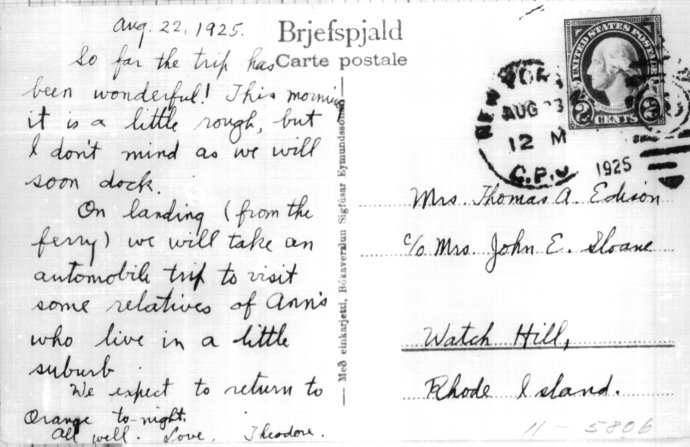 Aug. 22, 1925.
So far the trip has
been wonderful! This morning
it is a little rough, but
I don't mind as we will
soon dock.
On landing (from the
ferry) we will take an
automobile trip to visit
some relatives of Ann's
who live in a little
suburb.
We expect to return to
Orange to-night.
All well. Love, Theodore.
Brjefspjald
Carte postale
Með einkarjetti, Bókaverslun Sigfúsar Eymundssonar
NEW YORK
AUG 23
12 M
G.P.O
1925
UNITED STATES POSTAGE
2 CENTS 2
Mrs. Thomas A. Edison
c/o Mrs. John E. Sloane
Watch Hill,
Rhode Island.
11-5806